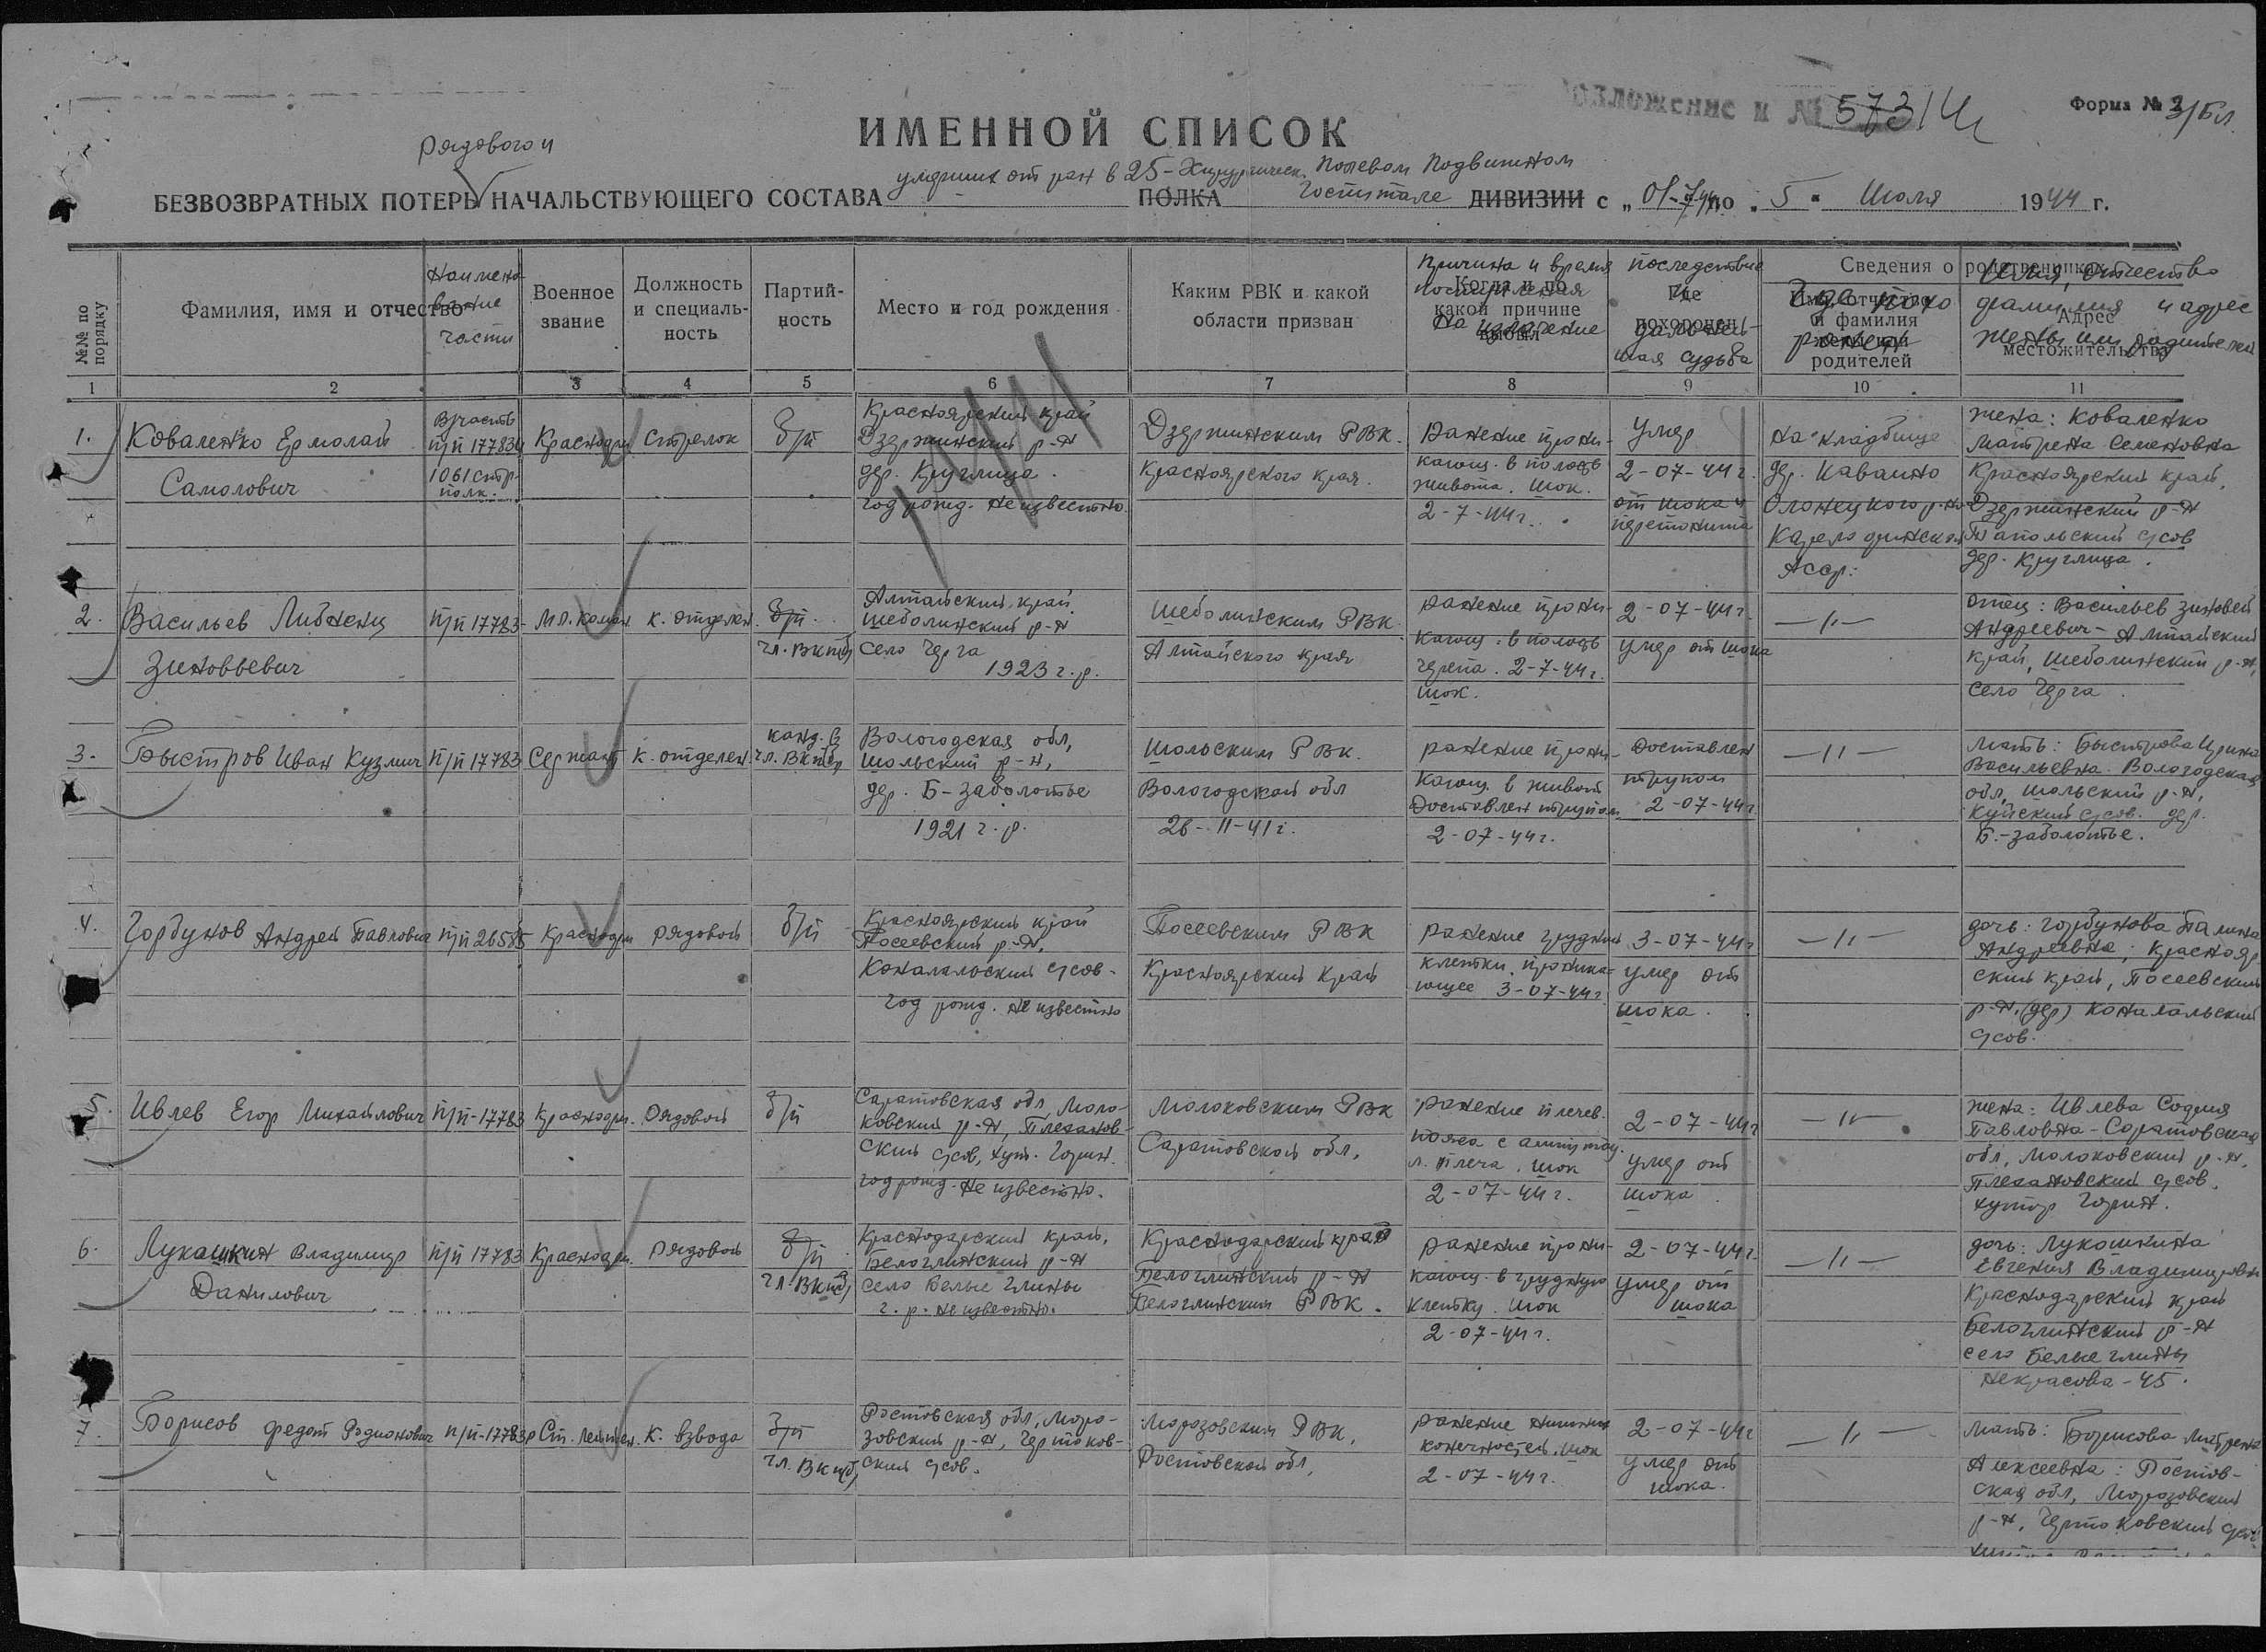 Приложение к № 573/4
Форма № 2/БЛ
ИМЕННОЙ СПИСОК
рядового и
умерших от ран в 25-Хирургическ. Полевом Подвижном
БЕЗВОЗВРАТНЫХ ПОТЕРЬ НАЧАЛЬСТВУЮЩЕГО СОСТАВА ПОЛКА Госпитале ДИВИЗИИ с „01-7-44 по „5" Июля 1944 г.
№№ по порядку
Фамилия, имя и отчество
Наимено-
вание
части
Военное
звание
Должность
и специаль-
ность
Партий-
ность
Место и год рождения
Каким РВК и какой
области призван
Когда и по
какой причине
выбыл
Причина и время
поступления
на излечение
Где
похоронен
последствие
и
дальней-
шая судьба
Сведения о родственниках
Имя, отчество
и фамилия
жены или
родителей
Адрес
местожительства
Имя, отчество
фамилия и адрес
жены или родителей
1 2 3 4 5 6 7 8 9 10 11
1.
Коваленко Ермолай
Самолович
В/часть
п/п 17783
1061 стр.
полк.
Красноарм
Стрелок
б/п
Красноярский край
Дзержинский р-н
дер. Круглица.
год рожд. неизвестно.
Дзержинским РВК.
Красноярского края.
Ранение прони-
кающ. в полость
живота. Шок.
2-7-44 г.
Умер
2-07-44 г.
от шока и
перетонита
на кладбище
дер. Каваино
Олонецкого р-на
Карело финской
АССР:
жена: Коваленко
Матрена Семеновна
Красноярский край,
Дзержинский р-н
Тапольский с/сов
дер. Круглица.
2.
Васильев Либненц
Зиновьевич
п/п 17783-
Мл. коман
к. отделен.
б/п.
чл. ВКП(б)
Алтайский край.
Шебалинский р-н
село Черга
1923 г. р.
Шебалинским РВК
Алтайского края
ранение прони-
кающ. в полость
черепа. 2-7-44 г.
шок.
2-07-44 г.
умер от шока
—〃—
отец: Васильев Зиновей
Андреевич - Алтайский
край, Шебалинский р-н,
село Черга.
3.
Быстров Иван Кузмич
п/п 17783
Сержант
к. отделен.
канд. в
чл. ВКП(б)
Вологодская обл,
Шольский р-н,
дер. Б-заболотье
1921 г. р.
Шольским РВК.
Вологодской обл
26-11-41 г.
ранение прони-
кающ. в живот
Доставлен трупом
2-07-44 г.
Доставлен
трупом
2-07-44 г.
—〃—
мать: Быстрова Ирина
Васильевна. Вологодская
обл, Шольский р-н,
Куйский с/сов. дер.
Б.-заболотье.
4.
Горбунов Андрей Павлович
п/п 26585
Красноарм
рядовой
б/п
Красноярский край
Тосеевский р-н,
Каналальский с/сов-
год рожд. не известно
Тосеевским РВК
Красноярский край
ранение грудной
клетки, проника-
ющее 3-07-44 г
3-07-44 г
умер от
шока.
—〃—
дочь: Горбунова Галина
Андреевна; Краснояр
ский край, Тосеевский
р-н. (дер) Каналальский
с/сов.
5.
Ивлев Егор Михайлович
п/п-17783
Красноарм.
Рядовой
б/п
Саратовская обл, Моло-
ковский р-н, Плеханов-
ский с/сов, хут. Горин.
год рожд. не известно.
Молоковским РВК
Саратовской обл,
ранение плечев.
пояса с ампутац.
л. плеча. шок
2-07-44 г.
2-07-44 г
умер от
шока.
—〃—
жена: Ивлева София
Павловна - Саратовская
обл, Молоковский р-н,
Плехановский с/сов,
хутор Горин.
6.
Лукашкин Владимир
Данилович
п/п 17783
Красноарм.
Рядовой
б/п
чл. ВКП(б)
Краснодарский край,
Белоглинский р-н
село Белые глины
г. р. не известно.
Краснодарский край
Белоглинский р-н
Белоглинским РВК.
ранение прони-
кающ. в грудную
клетку. шок
2-07-44 г.
2-07-44 г.
умер от
шока
—〃—
дочь: Лукошкина
Евгения Владимировн
Краснодарский край
Белоглинский р-н
село Белые глины
Некрасова-45.
7.
Борисов Федот Родионович
п/п-17783
Ст. лейтен.
к. взвода
б/п
чл. ВКП(б)
Ростовская обл, Моро-
зовский р-н, Чертков-
ский с/сов.
Морозовским РВК,
Ростовской обл,
ранение нижних
конечностей. шок
2-07-44 г.
2-07-44 г
умер от
шока.
—〃—
мать: Борисова Матрена
Алексеевна: Ростов-
ская обл, Морозовский
р-н, Чертковский с/сов